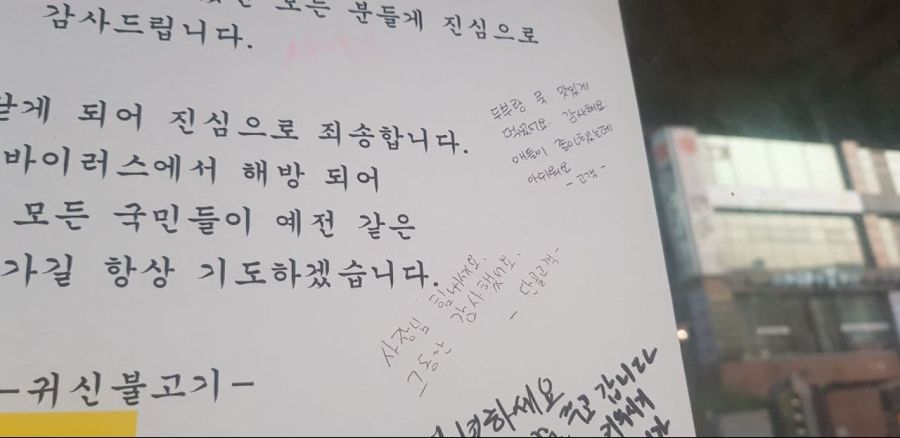 모든 분들게 진심으로
감사드립니다.
게 되어 진심으로 죄송합니다.
바이러스에서 해방 되어
모든 국민들이 예전 같은
가길 항상 기도하겠습니다.
-귀신불고기-
두부랑 묵 맛있게
먹었어요. 감사해요
애들이 좋아했는데
아쉬워요
- 고객 -
사장님 힘내세요.
그동안 감사했어요.
- 단골고객 -
갑니다